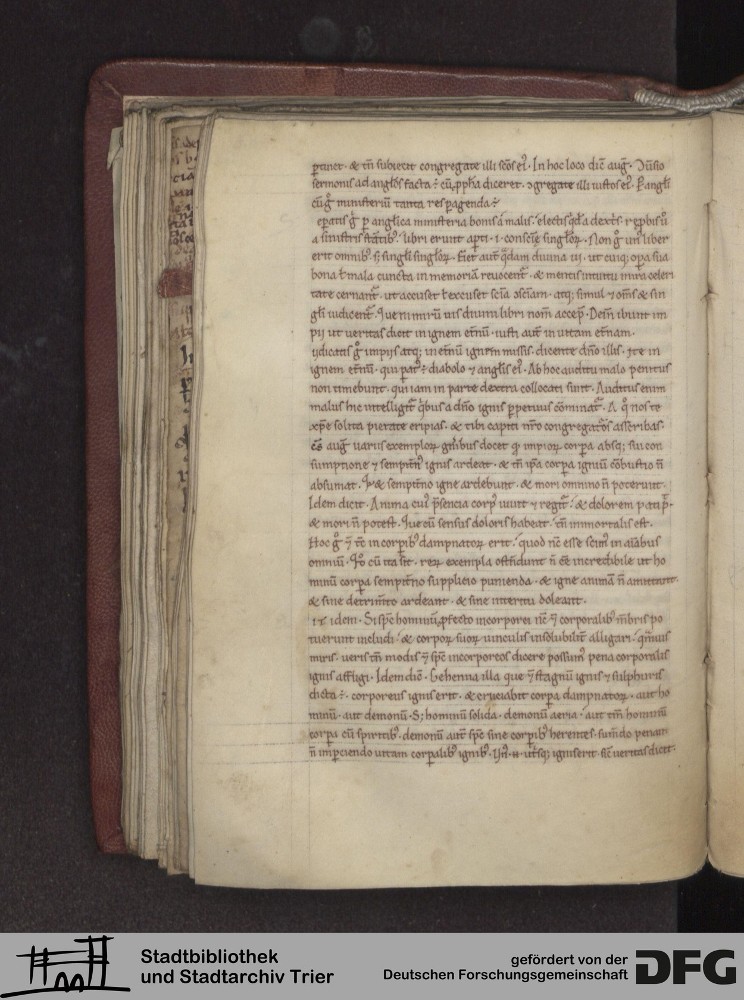 ptinet · & tn̄ subiecit congregate illi scōs ei᷒ · In hoc loco dic̄ aug᷒ ·
sermonis ad anglōs facta · diceret · ɔgregate illi iustos ei᷒ · anglī
ministeriū tanta res pagenda
anglica ministeria bonis a malis · electis
a sinistris stātib᷒ · libri erunt apti · i · conscīe singlōꝝ · Non gͦ un᷒ liber
erit omnib᷒ singlī singlōꝝ · aut̄ qͣdam diuina uis · ut cuiq; opa sua
bona ł mala cuncta in memoriam reuocent᷑ · & mentis intuitu mira celeri
tate cernant᷑ · ut accuset ł excuset scīa ɔsciam · atq; simul & oms̄ & sin
gli iudicent᷑ · diuina libri nom̄ accep · Dein̄ ibunt im
pii ut ueritas dicit in ignem etn̄ū · iusti aut̄ in uitam etnam ·
iudicatis gͦ impiis atq; in etn̄ū ignem missis · dicente dn̄o illis · Ite in
ignem etn̄ū · qui pat᷒ · diabolo & anglis ei᷒ · Ab hoc auditu malo penitus
non timebunt · qui iam in parte dextera collocati sunt · Auditus enim
malus hic intelligit᷑ qͥbus a dn̄o ignis ppetuus cōminat᷑ · A qͦ nos te
xp̄e solita pietate eripias · & tibi capiti nrō congregatōs asseribas ·
aug᷒ uariis exemploꝝ docet impioꝝ corpa absq; sui con
sumptione & sempitn᷒ ignis ardeat · & tn̄ ipa corpa igniū cōbustio n̄
absumat · & sempitn̄o igne ardebunt · & mori omnino n̄ poterunt ·
Idem dicit · Anima cui᷒ psencia corp᷒ uiuit & regit᷑ · & dolorem pati
& mori n̄ potest · cū sensus doloris habeat · tn̄ immortalis est ·
Hoc gͦ in corpib᷒ dampnatoꝝ erit · quod nc̄ esse scim᷒ in aīabus
omniū · cū ita sit · reꝝ exempla ostēdunt n̄ ee̅ incredibile ut ho
minū corpa sempitn̄o supplicio punienda · & igne animā n̄ amittant ·
& sine detrimto ardeant · & sine interitu doleant ·
It̄ idem · Si spc̄ hominū pfecto incorporei nc̄ corporalib᷒ mēbris po
tuerunt includi · & corpoꝝ suoꝝ uinculis insolubilit̄ alligari · qͣmuis
miris · ueris tn̄ modis & spc̄ incorporeos dicere possum᷒ pena corporalis
ignis affligi · Idem dic̄ · Gehenna illa que & stagnū ignis & sulphuris
dicta · corporeus ignis erit · & cruciabit corpa dampnatoꝝ · aut ho
minū · aut demonū · S; hominū solida · demonū aeria · aut tm̄ hominū
corpa cū spiritib᷒ · demonū aut̄ spc̄ sine corpib᷒ herentes · sumdo penam
n̄ impciendo uitam corpalib᷒ ignib᷒ · utisq; ignis erit · sic̄ ueritas dicit ·
Stadtbibliothek
und Stadtarchiv Trier
gefördert von der
Deutschen Forschungsgemeinschaft
DFG